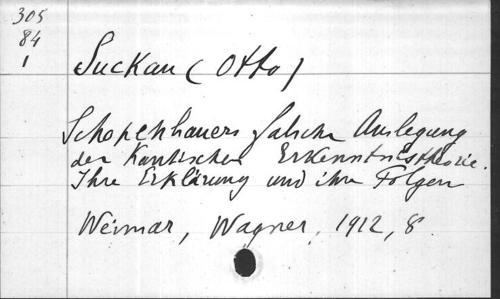 305
84
1
Suckau (Otto)
Schopenhauers falsche Auslegung
der Kantischen Erkenntnistheorie.
Ihre Erklärung und ihre Folgen
Weimar, Wagner, 1912, 8.